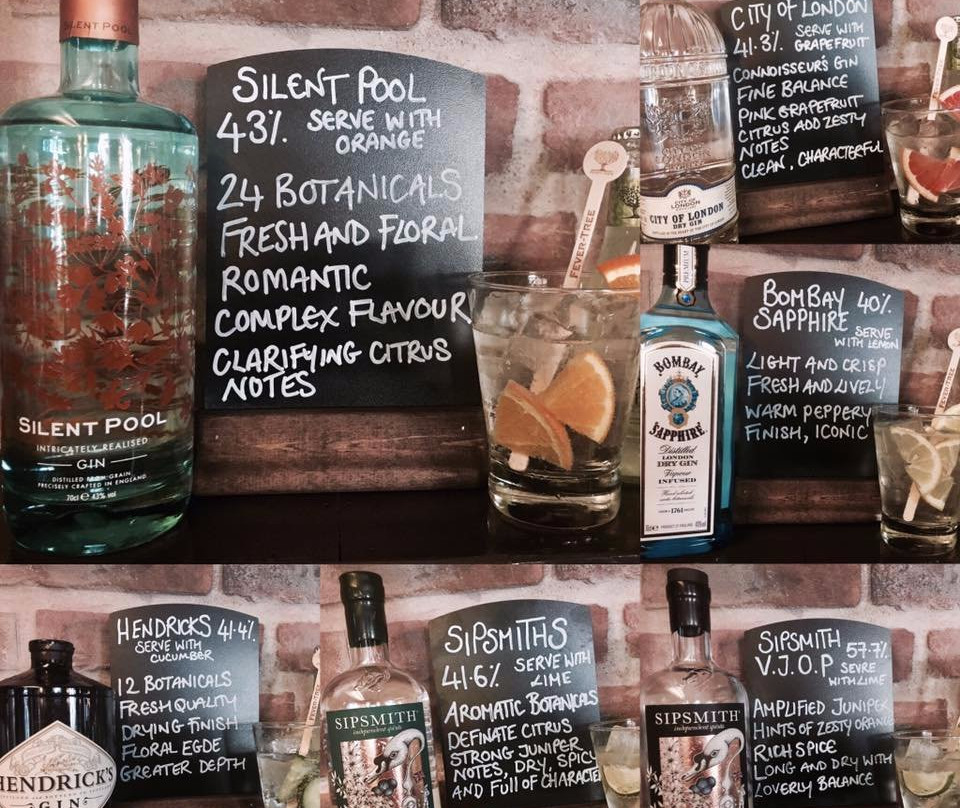 SILENT POOL
SILENT POOL
43%. SERVE WITH
ORANGE
24 BOTANICALS
FRESH AND FLORAL
ROMANTIC
COMPLEX FLAVOUR
CLARIFYING CITRUS
NOTES
SILENT POOL
INTRICATELY REALISED
GIN
DISTILLED FROM GRAIN
PRECISELY CRAFTED IN ENGLAND
70cl e 43% vol
FEVER-TREE
CITY OF LONDON
41.3%. SERVE WITH
GRAPEFRUIT
CONNOISSEUR'S GIN
FINE BALANCE
PINK GRAPEFRUIT
CITRUS ADD ZESTY
NOTES
CLEAN, CHARACTERFUL
CITY OF
LONDON
CITY OF LONDON
DRY GIN
BOMBAY 40%
SAPPHIRE SERVE
WITH LEMON
LIGHT AND CRISP
FRESH AND LIVELY
WARM PEPPERY
FINISH, ICONIC
BOMBAY
SAPPHIRE
Distilled
LONDON
DRY GIN
Vapour
INFUSED
1761
HENDRICKS 41.4%.
SERVE WITH
CUCUMBER
12 BOTANICALS
FRESH QUALITY
DRYING FINISH
FLORAL EGDE
GREATER DEPTH
HENDRICK'S
GIN
SIPSMITHS
41.6% SERVE WITH
LIME
AROMATIC BOTANICALS
DEFINATE CITRUS
STRONG JUNIPER
NOTES, DRY, SPICY
AND FULL OF CHARACTE
SIPSMITH
independent spirits
SIPSMITH 57.7%
V.J.O.P SEVRE
WITH LIME
AMPLIFIED JUNIPER
HINTS OF ZESTY ORANGE
RICH SPICE
LONG AND DRY WITH
LOVERLY BALANCE
SIPSMITH
independent spirits